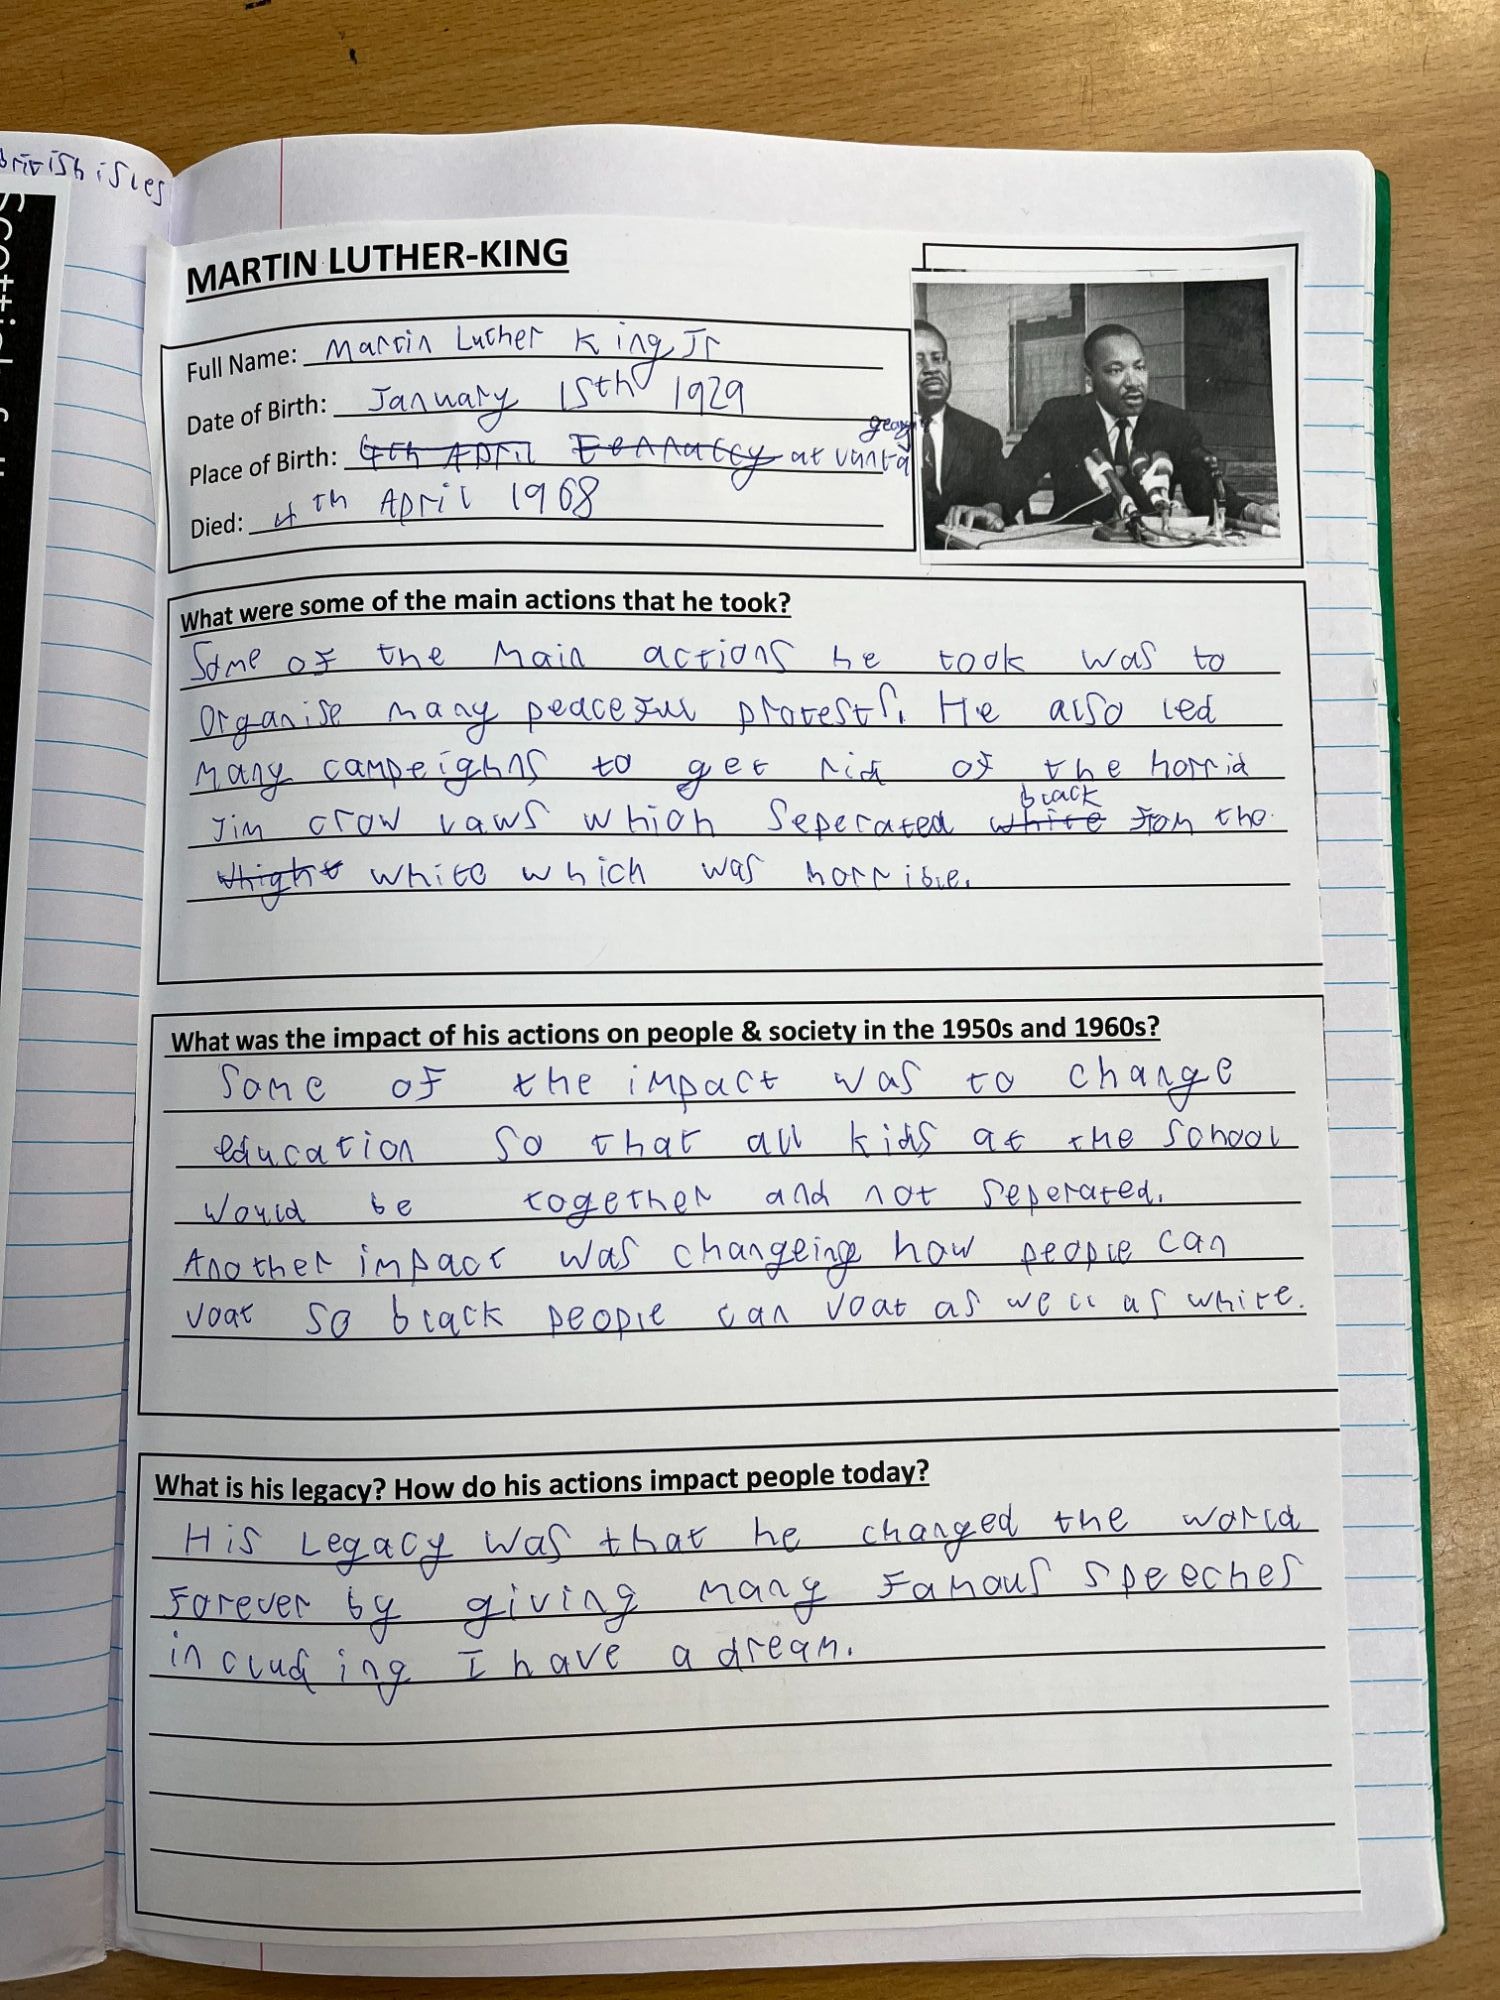 british isles
MARTIN LUTHER-KING
Full Name: Martin Luther King Jr
Date of Birth: January 15th 1929
georgi
Place of Birth: 4th April at vanta
Died: 4th April 1968
What were some of the main actions that he took?
Some of the main actions he took was to
organise many peaceful protests. He also led
many campeighns to get rid of the horrid
black
Jim crow laws which seperated white from the
whight white which was horrible.
What was the impact of his actions on people & society in the 1950s and 1960s?
Some of the impact was to change
education so that all kids at the school
would be together and not seperated.
Another impact was changeing how people can
voat so black people can voat as well as white.
What is his legacy? How do his actions impact people today?
His Legacy was that he changed the world
Forever by giving many Famous speeches
including I have a dream.